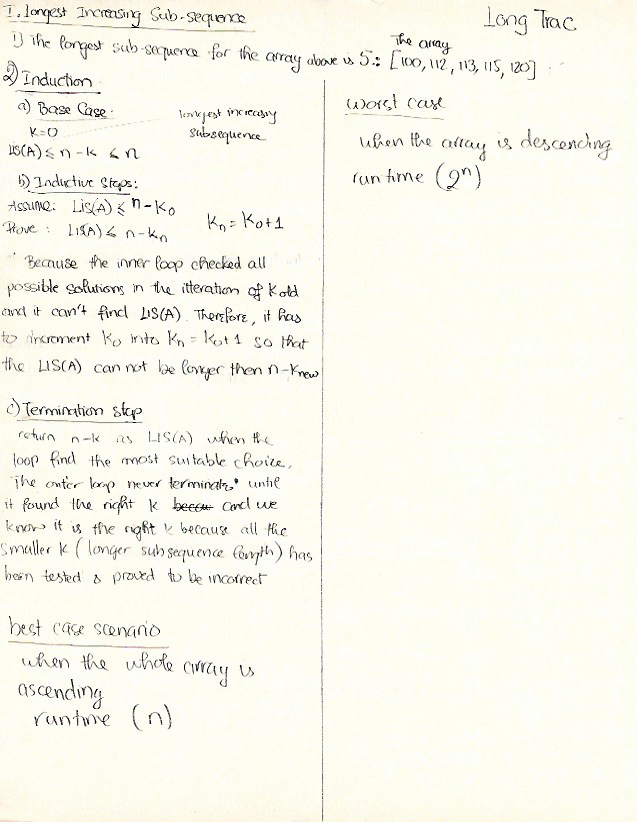 I. Longest Increasing Sub-sequence
Long Trac
1) The longest sub-sequence for the array above is 5 : [100, 112, 113, 115, 120]
The array
2) Induction
a) Base Case:
K=0
longest increasing
subsequence
LIS(A) ≤ n-k ≤ n
b) Inductive Steps:
Assume: LIS(A) ≤ n-k₀
Prove : LIS(A) ≤ n-kₙ
kₙ = k₀+1
Because the inner loop checked all
possible solutions in the itteration of K old
and it can't find LIS(A). Therefore, it has
to increment k₀ into kₙ = k₀+1 so that
the LIS(A) can not be longer then n-Knew
c) Termination step
return n-k as LIS(A) when the
loop find the most suitable choice.
The outer loop never terminate until
it found the right k and we
know it is the right k because all the
smaller k (longer subsequence length) has
been tested & proved to be incorrect
best case scenario
when the whole array is
ascending
runtime (n)
worst case
when the array is descending
runtime (2ⁿ)